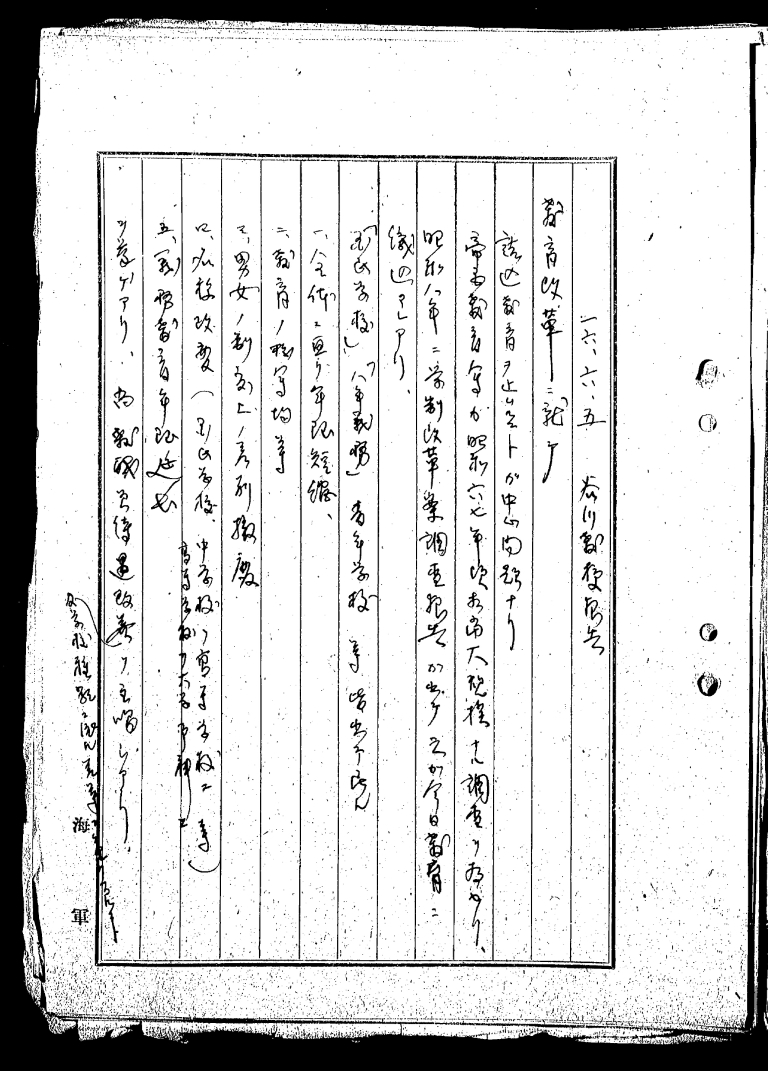 一六、六、五　谷川教授報告
教育改革ニ就テ
詰込教育ヲ止メルコトガ中心問題ナリ
帝国教育会ガ昭和六七年頃相当大規模ナル調査ヲ為セリ、
昭和八年ニ学制改革案調査報告ガ出テ之ガ今日教育ニ
織込マレアリ、
「国民学校」「八年義務」青年学校　等皆出テ居ル
一、全体ニ亘リ年限短縮、
二、教育ノ機会均等
三、男女ノ制度上ノ差別撤廃
四、名称改変（国民学校、中学校ヲ高等学校ニ　等）
高等学校ヲ大学予科ニ
五、義務教育年限延長
ヲ挙ゲアリ、尚教職員待遇改善ヲ主唱シアリ、
海軍